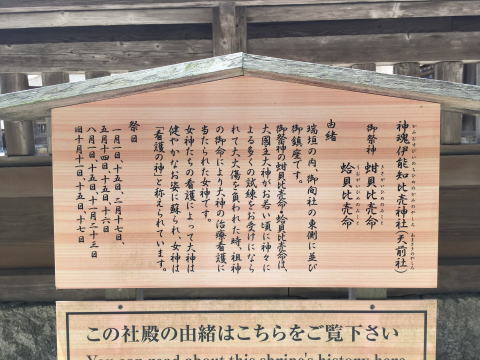 神魂伊能知比売神社(天前社)
御祭神 蚶貝比売命
蛤貝比売命
由緒
瑞垣の内、御向社の東側に並び
御鎮座です。
御祭神の蚶貝比売命・蛤貝比売命は、
大国主大神がお若い頃に神々に
よる多くの試練をお受けになら
れて大火傷を負われた時、祖神
の御命により大神の治療看護に
当たられた女神です。
女神たちの看護によって大神は
健やかなお姿に蘇られ、女神は
「看護の神」と称えられています。
祭日
一月一日、十五日、二月十七日、
五月十四日、十五日、十六日
八月一日、十五日、十一月二十三日
旧十月十一日、十五日、十七日
この社殿の由緒はこちらをご覧下さい
You can read about this shrine's history here